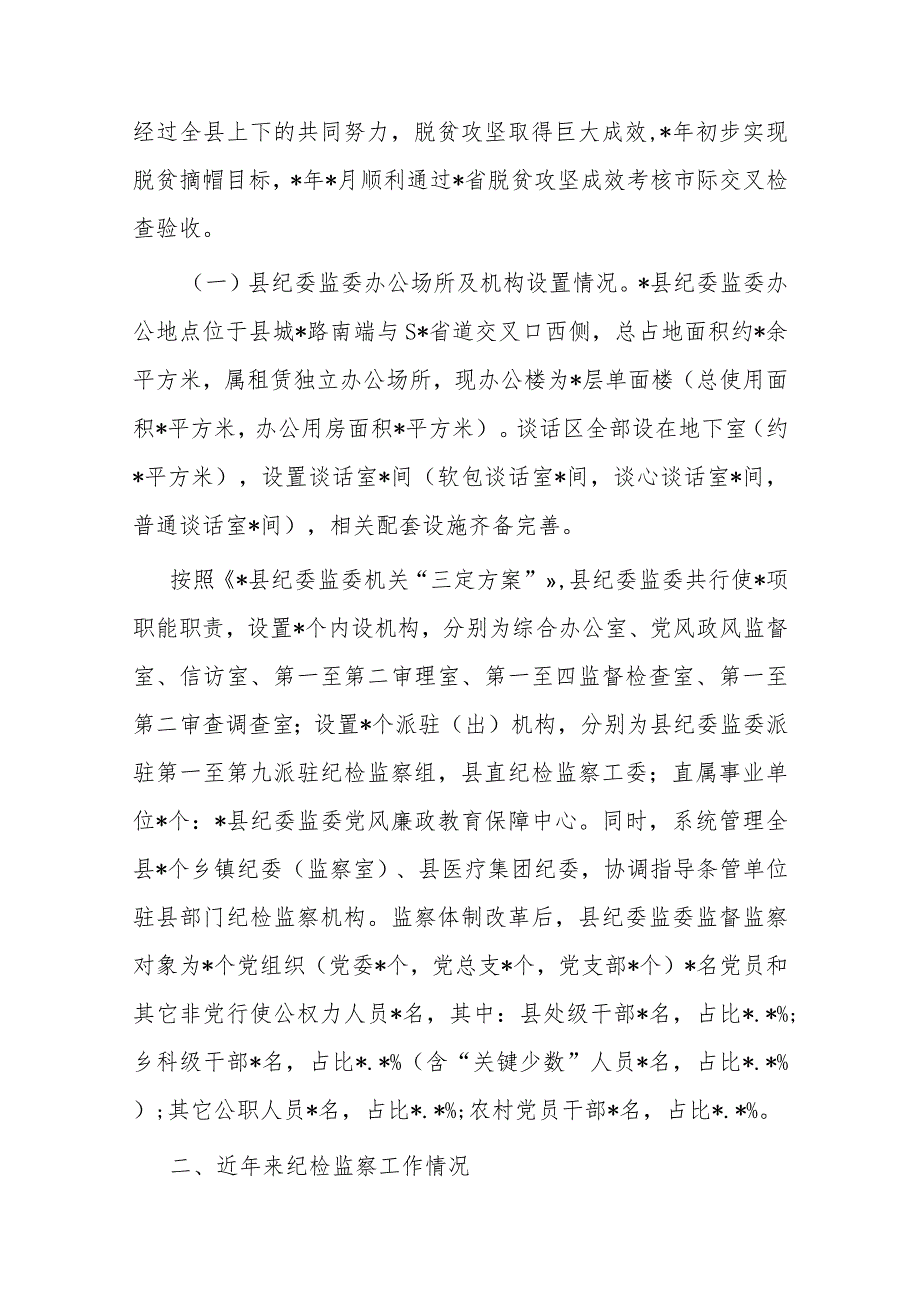 经过全县上下的共同努力，脱贫攻坚取得巨大成效,*年初步实现
脱贫摘帽目标，*年*月顺利通过*省脱贫攻坚成效考核市际交叉检
查验收。
（一）县纪委监委办公场所及机构设置情况。*县纪委监委办
公地点位于县城*路南端与S*省道交叉口西侧，总占地面积约*余
平方米，属租赁独立办公场所，现办公楼为*层单面楼（总使用面
积*平方米，办公用房面积*平方米）。谈话区全部设在地下室（约
*平方米），设置谈话室*间（软包谈话室*间，谈心谈话室*间，
普通谈话室*间），相关配套设施齐备完善。
按照《*县纪委监委机关“三定方案”»,县纪委监委共行使*项
职能职责，设置*个内设机构，分别为综合办公室、党风政风监督
室、信访室、第一至第二审理室、第一至四监督检查室、第一至
第二审查调查室；设置*个派驻（出）机构，分别为县纪委监委派
驻第一至第九派驻纪检监察组，县直纪检监察工委；直属事业单
位*个：*县纪委监委党风廉政教育保障中心。同时，系统管理全
县*个乡镇纪委（监察室）、县医疗集团纪委，协调指导条管单位
驻县部门纪检监察机构。监察体制改革后，县纪委监委监督监察
对象为*个党组织（党委*个，党总支*个，党支部*个）*名党员和
其它非党行使公权力人员*名，其中：县处级干部*名，占比*.*%;
乡科级干部*名，占比*.*%（含“关键少数”人员*名，占比*.*%
）;其它公职人员*名，占比*.*%;农村党员干部*名，占比*.*%。
二、近年来纪检监察工作情况